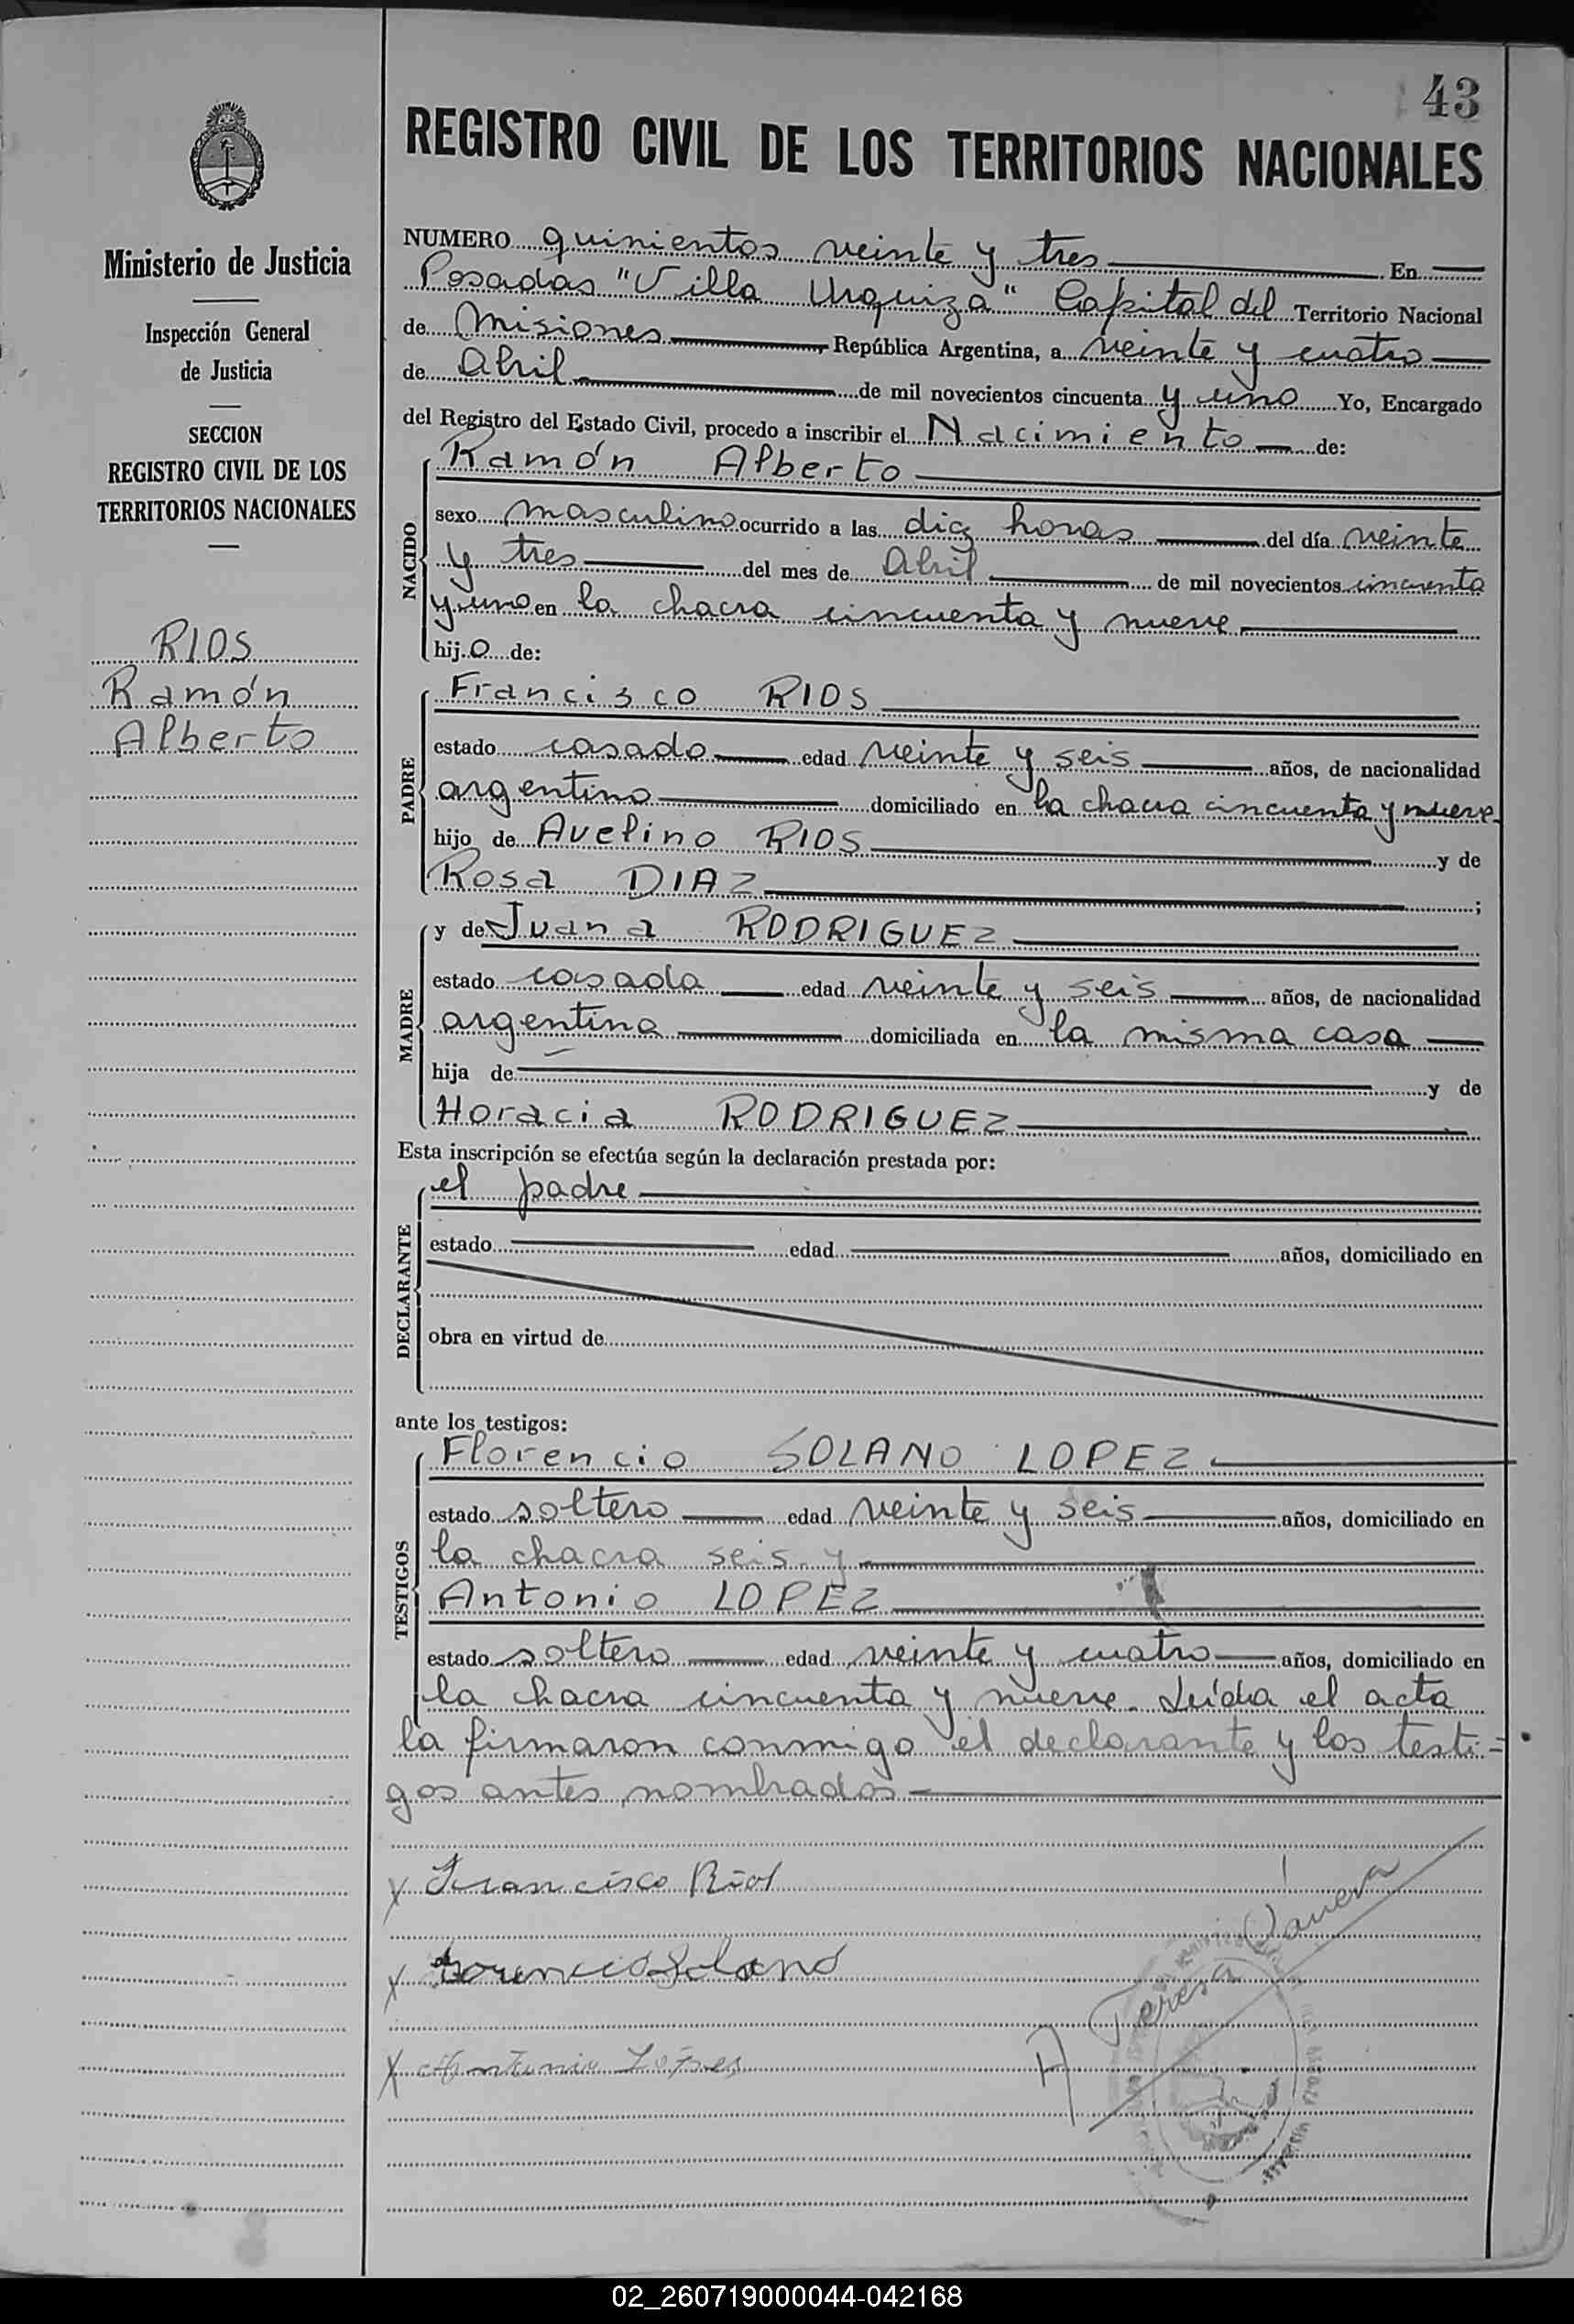 43
REGISTRO CIVIL DE LOS TERRITORIOS NACIONALES
Ministerio de Justicia
Inspección General
de Justicia
SECCION
REGISTRO CIVIL DE LOS
TERRITORIOS NACIONALES
RIOS
Ramón
Alberto
NUMERO quinientos veinte y tres En
Posadas "Villa Urquiza" Capital del Territorio Nacional
de Misiones República Argentina, a veinte y cuatro
de Abril de mil novecientos cincuenta y uno Yo, Encargado
del Registro del Estado Civil, procedo a inscribir el Nacimiento de:
Ramón Alberto
NACIDO
sexo masculino ocurrido a las diez horas del día veinte
y tres del mes de Abril de mil novecientos cincuenta
y uno en la chacra cincuenta y nueve
hijo de:
Francisco RIOS
PADRE
estado casado edad veinte y seis años, de nacionalidad
argentino domiciliado en la chacra cincuenta y nueve
hijo de Avelino RIOS y de
Rosa DIAZ ;
y de Juana RODRIGUEZ
MADRE
estado casada edad veinte y seis años, de nacionalidad
argentina domiciliada en la misma casa
hija de y de
Horacia RODRIGUEZ
Esta inscripción se efectúa según la declaración prestada por:
el padre
DECLARANTE
estado edad años, domiciliado en
obra en virtud de
ante los testigos:
Florencio SOLANO LOPEZ
TESTIGOS
estado soltero edad veinte y seis años, domiciliado en
la chacra seis y
Antonio LOPEZ
estado soltero edad veinte y cuatro años, domiciliado en
la chacra cincuenta y nueve. Leída el acta
la firmaron conmigo el declarante y los testi=
gos antes nombrados
x Francisco Rios
x Florencio Solano
x Antonio Lopes
Teresa
02_260719000044-042168